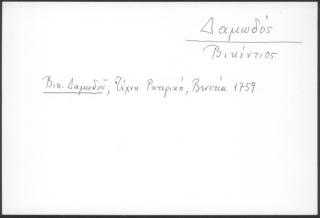 Δαμωδός
Βικέντιος
Βικ. Δαμωδοῦ, Τέχνη Ρητορική, Βενετία 1759.